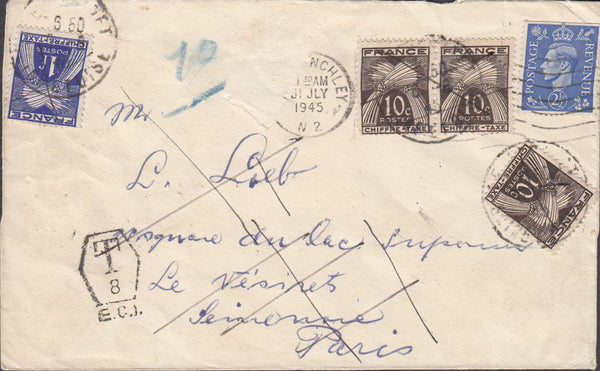 6.50
1c
POSTES
CHIFFRE-TAXE
FRANCE
10
NCHLEY
30AM
31 JLY
1945
N 2
FRANCE
10c
POSTES
CHIFFRE-TAXE
FRANCE
10c
POSTES
CHIFFRE-TAXE
POSTAGE
REVENUE
2½
FRANCE
10c
POSTES
CHIFFRE-TAXE
Mr
L. Loeb
square du Lac Supérieur
Le Vésinet
Paris
T
8
E.C.I.